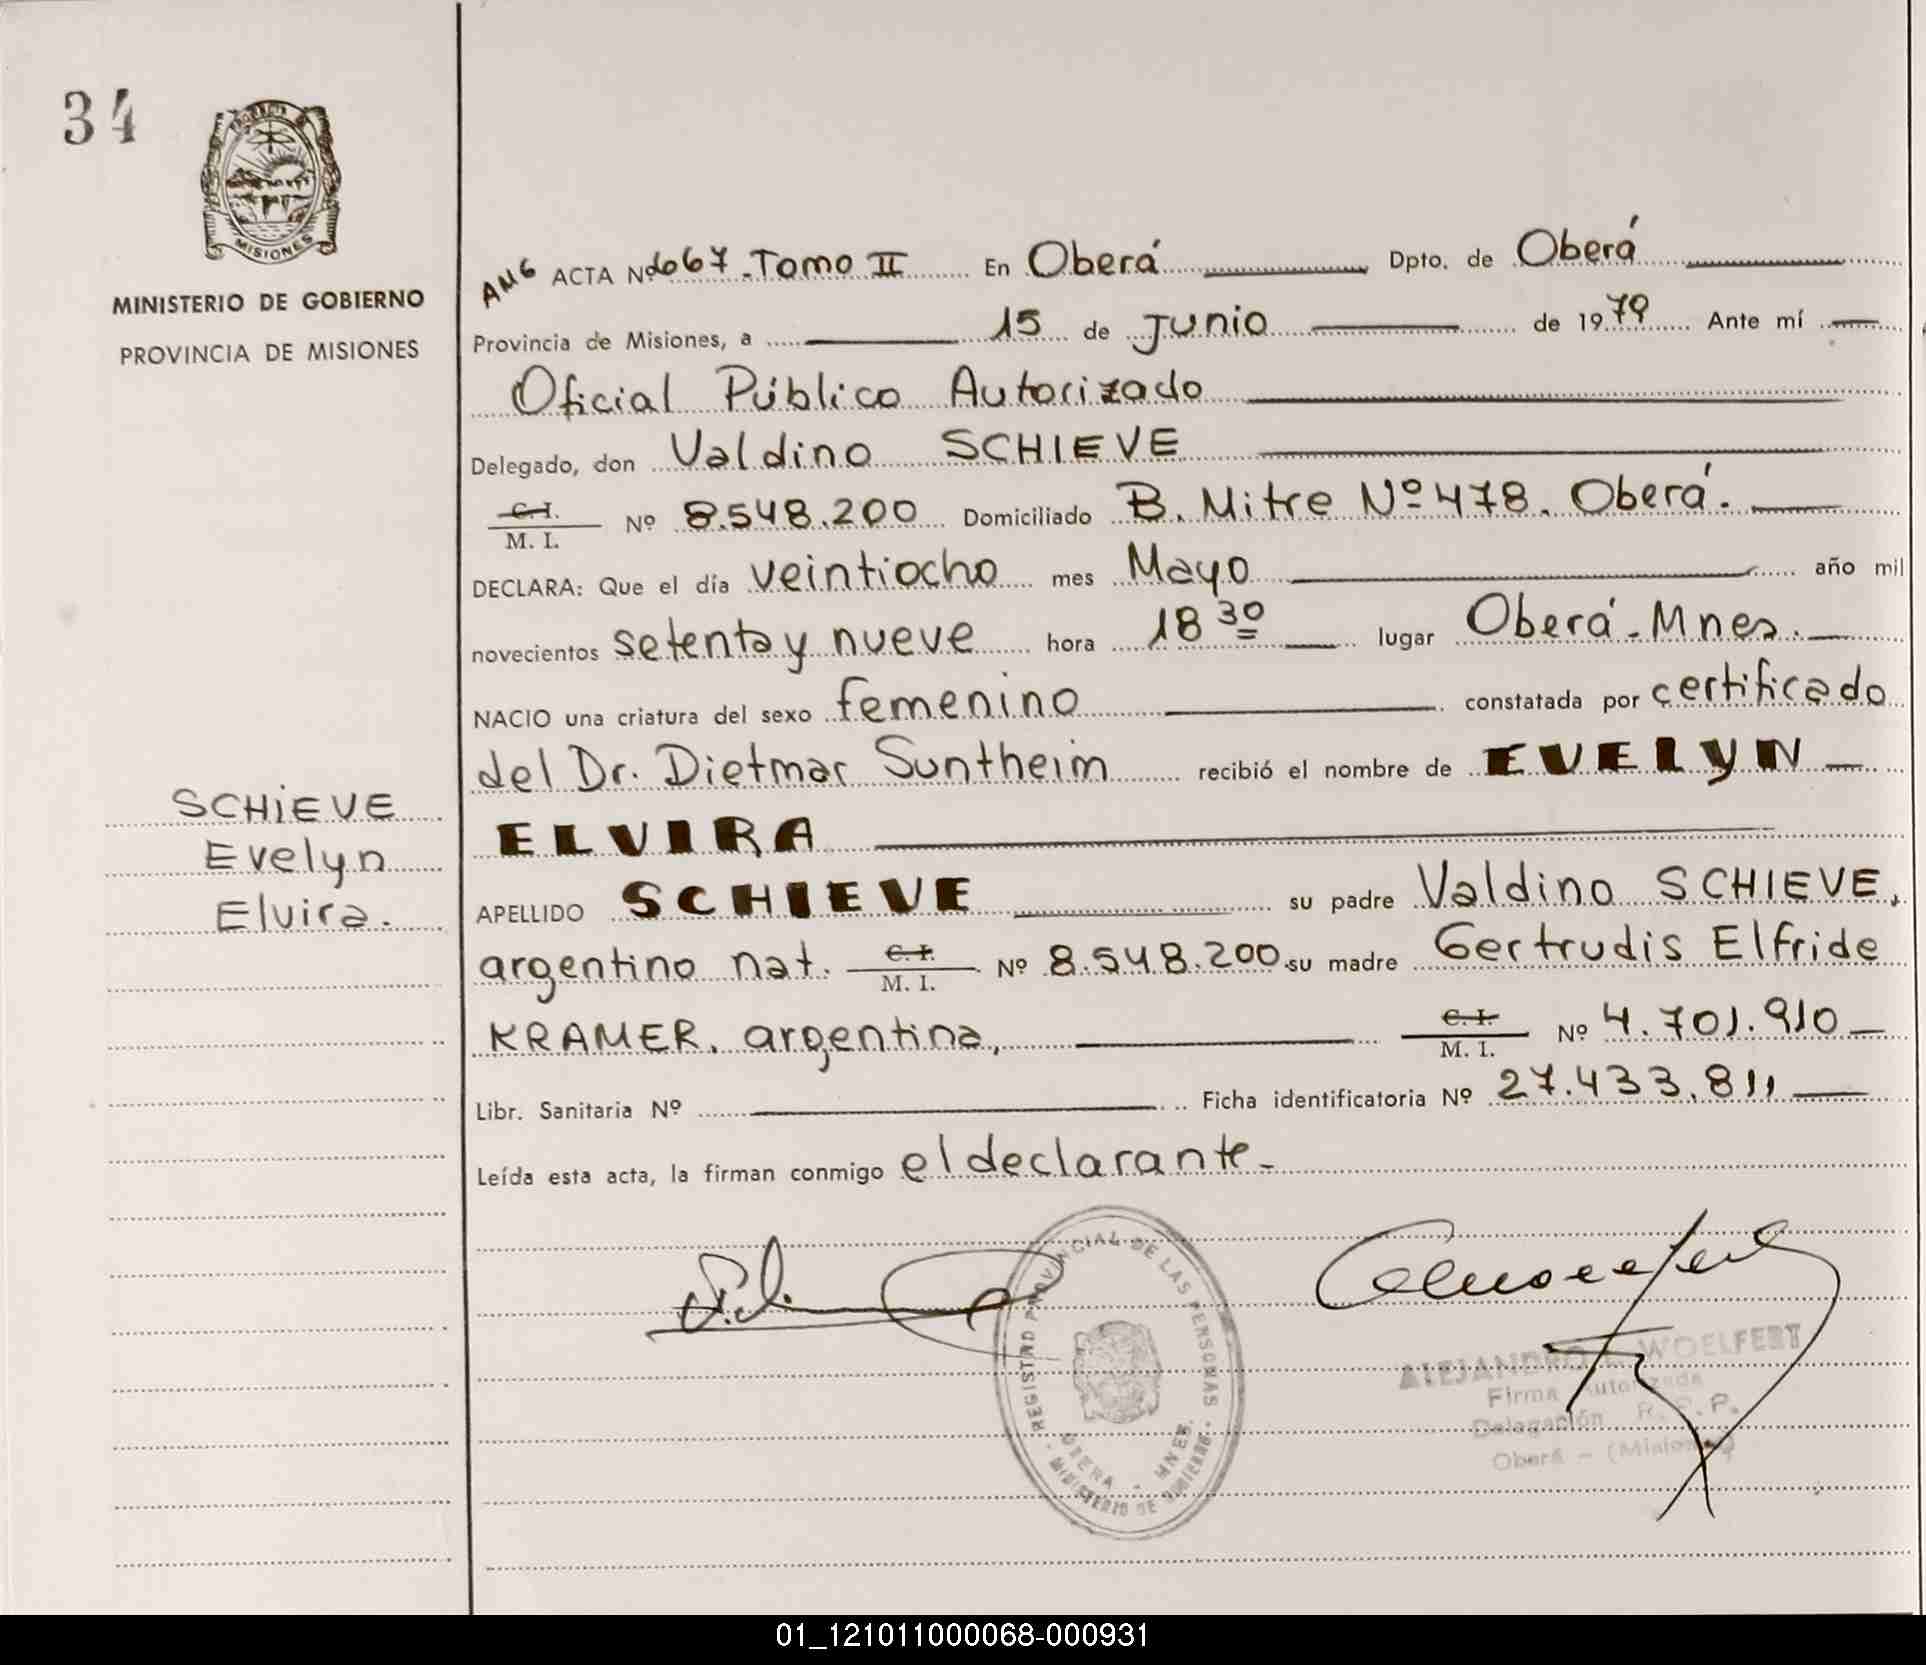 34
PROVINCIA DE
MISIONES
MINISTERIO DE GOBIERNO
PROVINCIA DE MISIONES
SCHIEVE
Evelyn
Elvira.
AMG ACTA Nº 667 - Tomo II En Oberá Dpto. de Oberá
Provincia de Misiones, a 15 de Junio de 1979 Ante mí
Oficial Público Autorizado
Delegado, don Valdino SCHIEVE
C. I. / M. I. Nº 8.548.200 Domiciliado B. Mitre Nº 478. Oberá.
DECLARA: Que el día veintiocho mes Mayo año mil
novecientos setenta y nueve hora 18 30 lugar Oberá - Mnes.
NACIO una criatura del sexo femenino constatada por certificado
del Dr. Dietmar Suntheim recibió el nombre de EVELYN
ELVIRA
APELLIDO SCHIEVE su padre Valdino SCHIEVE,
argentino nat. C. I. / M. I. Nº 8.548.200 su madre Gertrudis Elfride
KRAMER. argentina, C. I. / M. I. Nº 4.701.910
Libr. Sanitaria Nº Ficha identificatoria Nº 27.433.811
Leída esta acta, la firman conmigo el declarante.
REGISTRO PROVINCIAL DE LAS PERSONAS
OBERA - MNES.
MINISTERIO DE GOBIERNO
ALEJANDRO WOELFERT
Firma Autorizada
Delegación R. P. P.
Oberá - (Misiones)
01_121011000068-000931